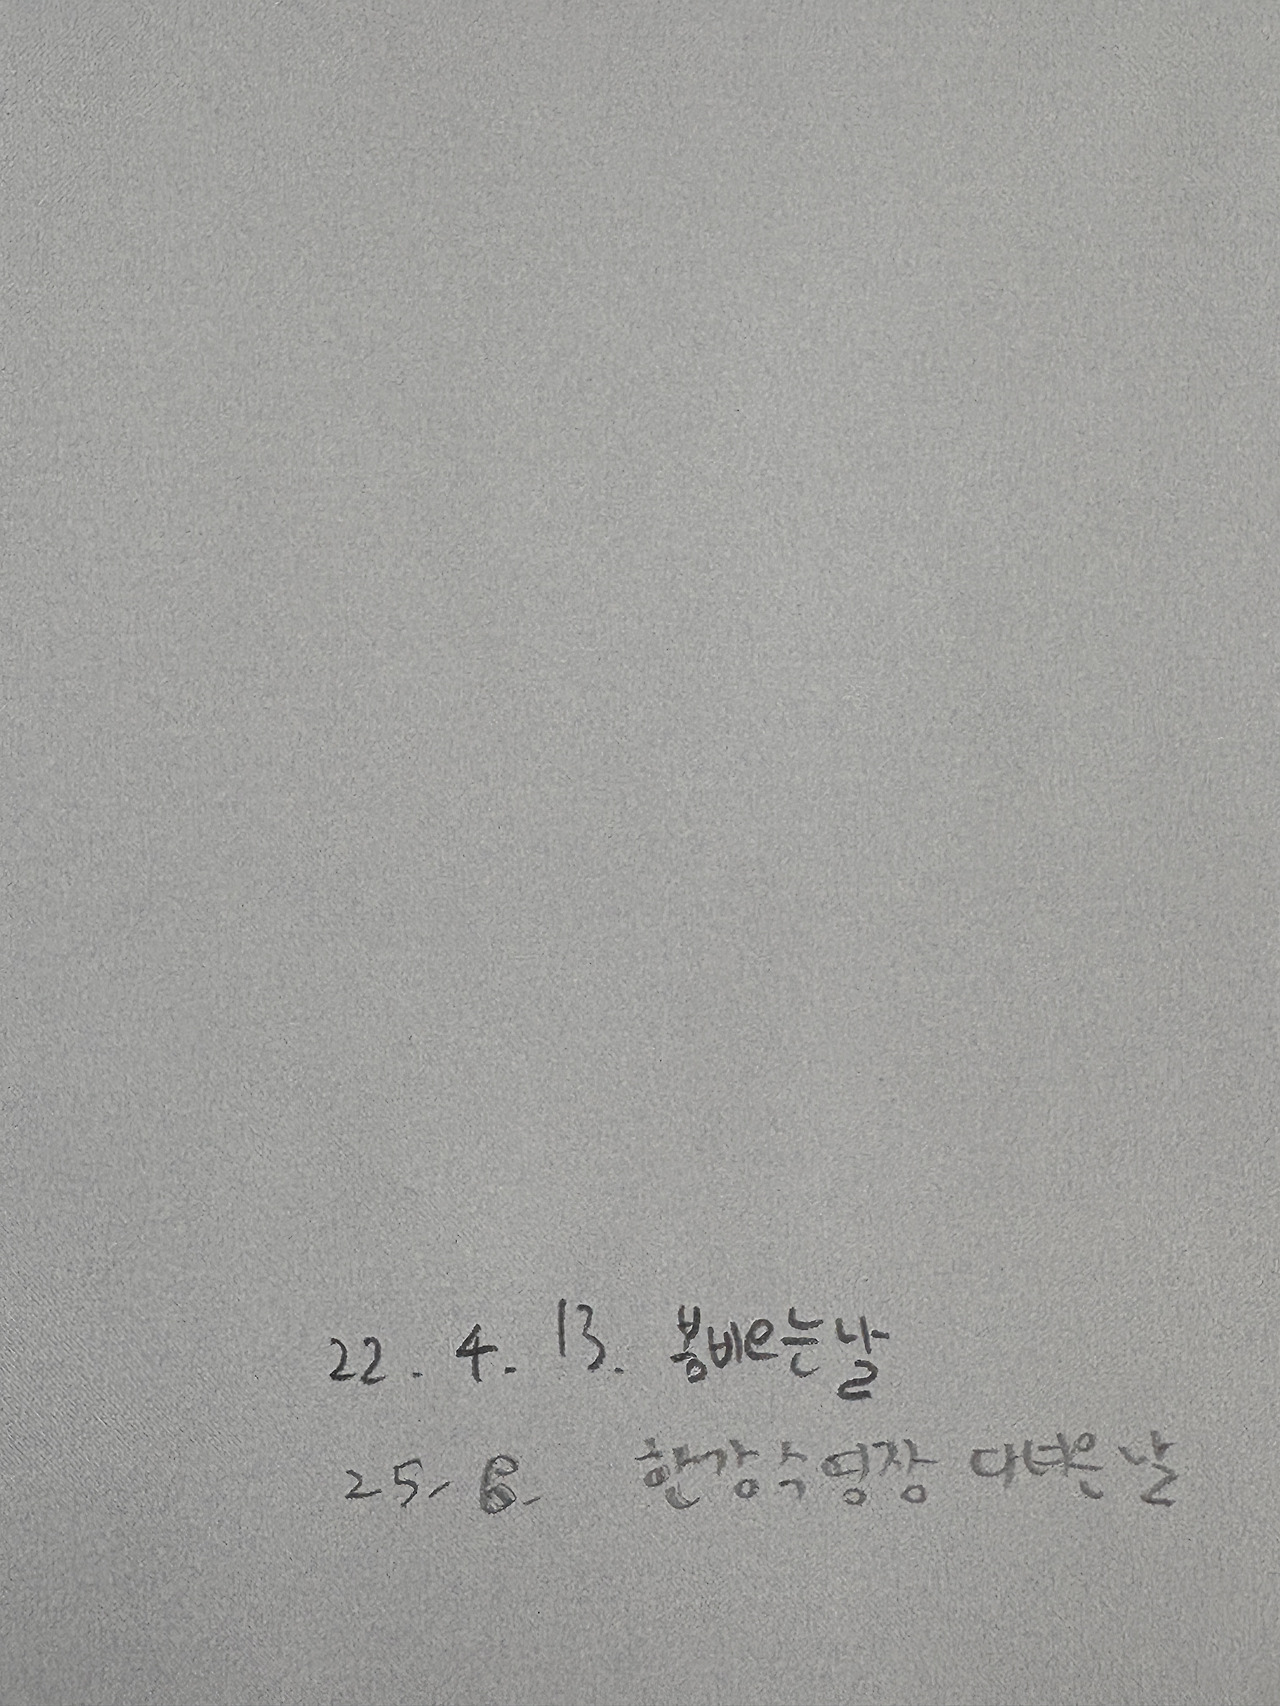 22. 4. 13. 봄비오는날
25. 8. 한강수영장 다녀온날